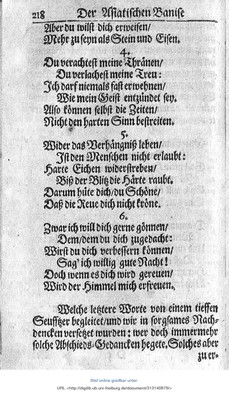 218 Der Asiatischen Banise
Aber du wilst dich erweisen/
Mehr zu seyn als Stein und Eisen.
4.
Du verachtest meine Thränen/
Du verlachest meine Treu:
Ich darf niemals fast erwehnen/
Wie mein Geist entzündet sey.
Also können selbst die Zeiten/
Nicht den harten Sinn bestreiten.
5.
Wider das Verhängniß leben/
Ist den Menschen nicht erlaubt:
Harte Eichen widerstreben/
Biß der Blitz die Härte raubt.
Darum hüte dich/ du Schöne/
Daß die Reue dich nicht kröne.
6.
Zwar ich will dich gerne gönnen/
Dem/ dem du dich zugedacht:
Wirst du dich verbessern können/
Sag' ich willig gute Nacht!
Doch wenn es dich wird gereuen/
Wird der Himmel mich erfreuen.
Welche letztere Worte von einem tieffen
Seufftzer begleitet/ und wir in sorgsames Nach-
dencken versetzet wurden: wer doch immermehr
solche Abschieds-Gedancken hegete. Solches aber
zu er-
Bild online greifbar unter